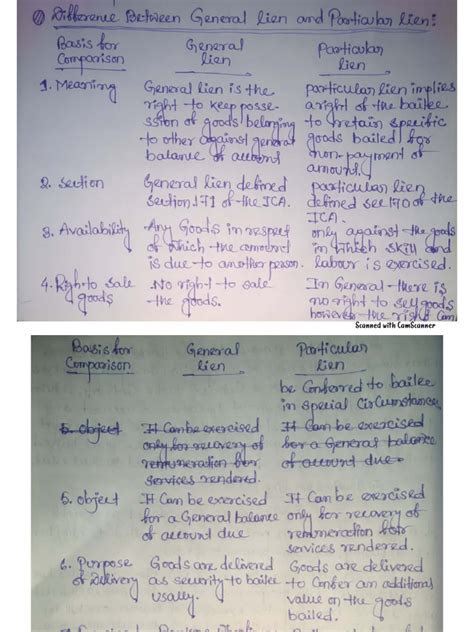 Difference Between General lien and Particular lien:
Basis for Comparison General lien Particular lien
1. Meaning General lien is the right to keep possession of goods belonging to other against general balance of account particular lien implies a right of the bailee to retain specific goods bailed for non-payment of amount.
2. section General lien defined section.171 of the ICA. particular lien defined sec 170 of the ICA.
3. Availability Any Goods in respect of which the amount is due to another person. only against the goods in which skill and labour is exercised.
4. Right to sale goods No right to sale the goods. In General there is no right to sell goods however the right can
Scanned with CamScanner
Basis for Comparison General lien Particular lien
be Conferred to bailee in special Circumstance
5. object It Can be exercised only for recovery of remuneration for services rendered. It Can be exercised for a General balance of account due
5. object It Can be exercised for a General balance of account due It Can be exercised only for recovery of remuneration for services rendered.
6. Purpose of Delivery Goods are delivered as security to bailee usally. Goods are delivered to Confer an additional value on the goods bailed.